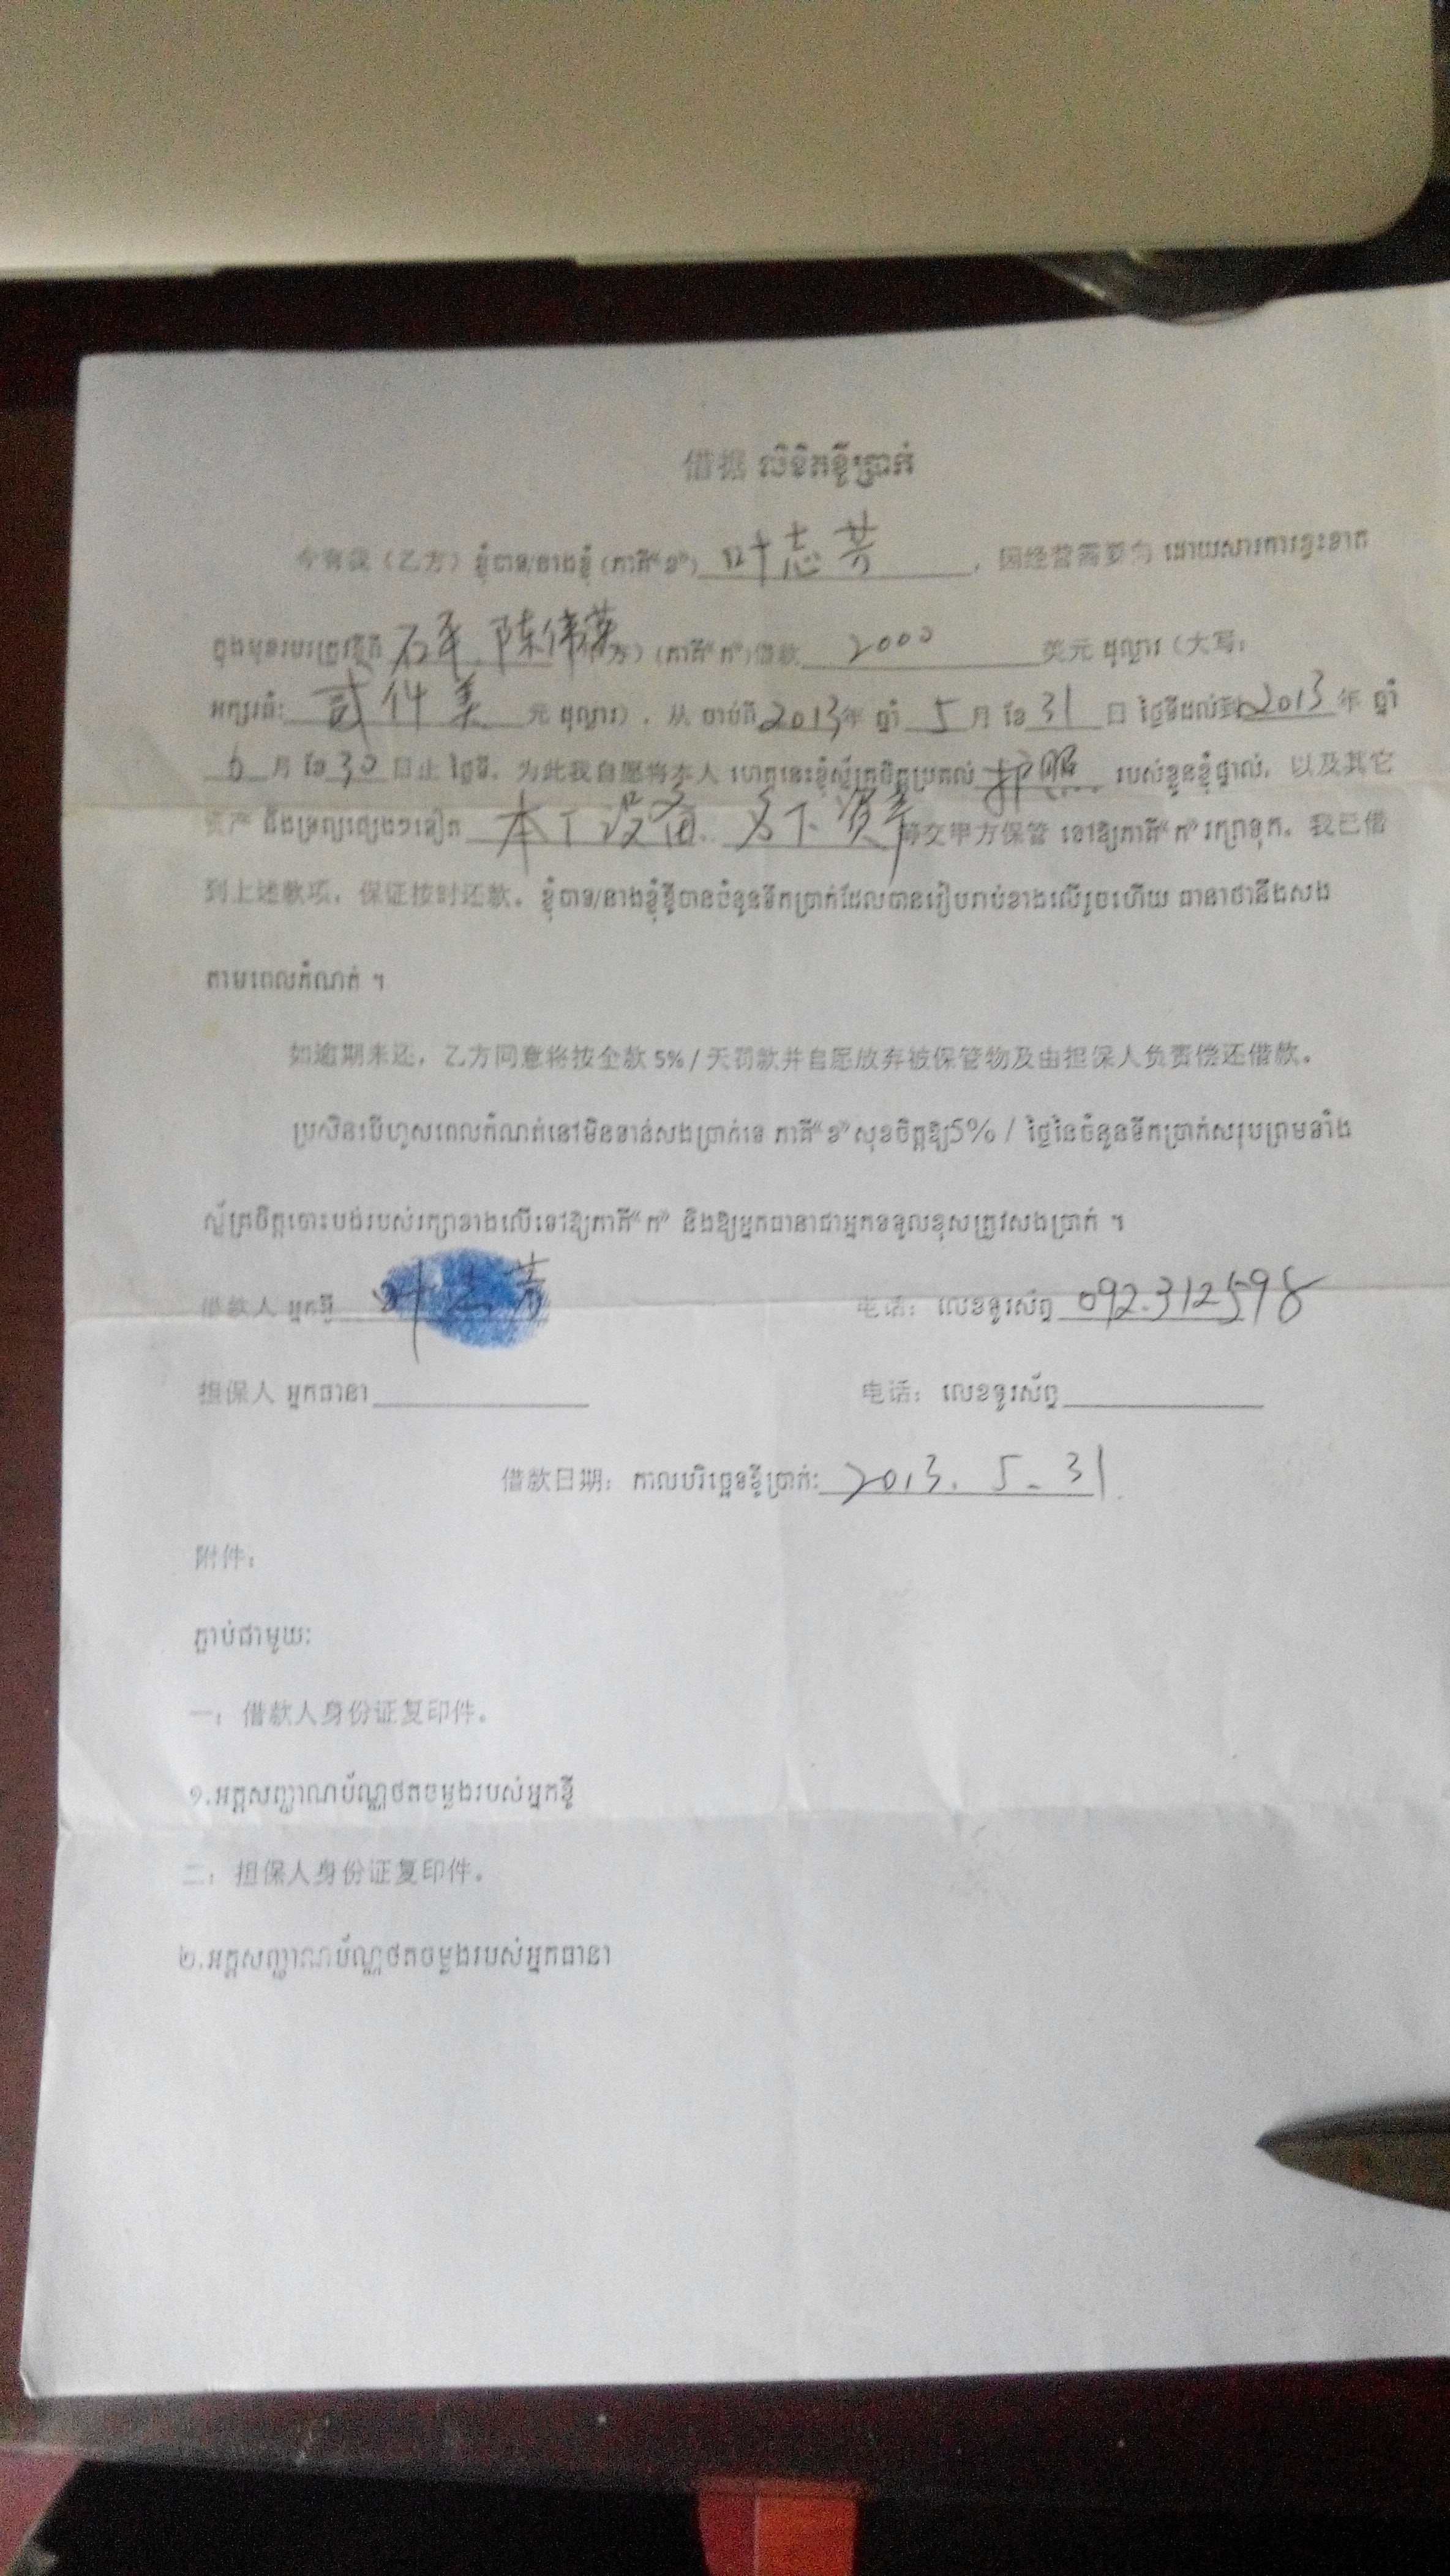 借据 លិខិតខ្ចីប្រាក់
今有我（乙方）ខ្ញុំបាទ/នាងខ្ញុំ (ភាគី“ខ”) 叶志芳 ，因经营需要向 ដោយសារការខ្វះខាត
ក្នុងមុខរបររត្រូវខ្ចីពី 陈伟 方）(ភាគី“ក”)借款 2000 美元 ដុល្លារ（大写：
អក្សរធំ: 贰仟美 元 ដុល្លារ）, 从 ចាប់ពី 2013 年 ឆ្នាំ 5 月 ខែ 31 日 ថ្ងៃទីដល់到 2013 年 ឆ្នាំ
6 月 ខែ 30 日止 ថ្ងៃទី. 为此我自愿将本人 ហេតុនេះខ្ញុំស្ម័គ្រចិត្តប្រគល់ 护照 របស់ខ្លួនខ្ញុំផ្ទាល់, 以及其它
资产 និងទ្រព្យផ្សេងៗទៀត 本 设 等交甲方保管 ទៅឱ្យភាគី“ក”រក្សាទុក. 我已借
到上述款项，保证按时还款。ខ្ញុំបាទ/នាងខ្ញុំខ្ចីបានចំនួនទឹកប្រាក់ដែលបានរៀបរាប់ខាងលើរួចហើយ ធានាថានឹងសង
តាមពេលកំណត់ ។
如逾期未还，乙方同意将按全款 5% / 天罚款并自愿放弃被保管物及由担保人负责偿还借款。
ប្រសិនបើហួសពេលកំណត់នៅមិនទាន់សងប្រាក់ទេ ភាគី“ខ” សុខចិត្តឱ្យ5% / ថ្ងៃនៃចំនួនទឹកប្រាក់សរុបព្រមទាំង
ស្ម័គ្រចិត្តបោះបង់របស់រក្សាខាងលើទៅឱ្យភាគី“ក” និងឱ្យអ្នកធានាជាអ្នកទទួលខុសត្រូវសងប្រាក់ ។
借款人 អ្នកខ្ចី 叶志芳 电话： លេខទូរស័ព្ទ 092.312598
担保人 អ្នកធានា 电话： លេខទូរស័ព្ទ
借款日期： កាលបរិច្ឆេទខ្ចីប្រាក់: 2013. 5. 31
附件：
ភ្ជាប់ជាមួយ:
一：借款人身份证复印件。
១.អត្តសញ្ញាណប័ណ្ណថតចម្លងរបស់អ្នកខ្ចី
二：担保人身份证复印件。
២.អត្តសញ្ញាណប័ណ្ណថតចម្លងរបស់អ្នកធានា